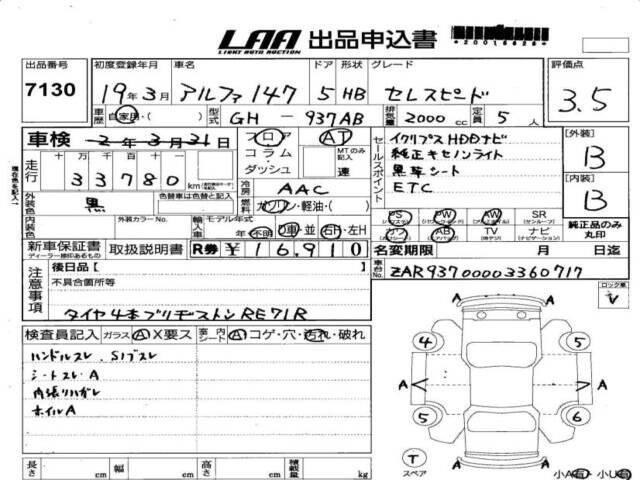 LAA 出品申込書
LIGHT AUTO AUCTION
出品番号 初度登録年月 車名 ドア 形状 グレード 評価点
7130 19年3月 アルファ147 5 HB セレスピード 3.5
車歴 自家用・( ) 型式 GH-937AB 排気量 2000cc 定員 5人
車検 2年3月31日 フロア コラム・ダッシュ AT MTのみ記入 速
走行 十万千百十 33780 km
セールスポイント
イクリプスHDDナビ
純正キセノンライト
黒革シート
ETC
[外装] B
[内装] B
現在色を記入
外装色 黒 色替車は色替と記入 冷房 AAC
燃料 ガソリン・軽油・( )
内装色 外装カラーNo. 輸入車 モデル年式 年 不明 D車・並 右H・左H
PS PW AW SR (サンルーフ)
カワ AB (エアバッグ) TV (地デジ) ナビ (ナビゲーション)
純正品のみ丸印
新車保証書 取扱説明書 R券 ¥16,910
ディーラー捺印あるもの
名変期限 月 日迄
車台No. ZAR93700003360717
注意事項 後日品 [ ]
不具合箇所等
タイヤ4本ブリヂストンRE71R
ロック車
検査員記入 ガラス A・X要ス 室内 シート A コゲ・穴・汚れ・破れ
ハンドルスレ、S1ブスレ
シートスレ・A
内張リハガレ
ホイルA
4 5
A A
5 6
A
T
スペア
長さ cm 幅 cm 高さ cm 積載量 kg
小A有・小U有